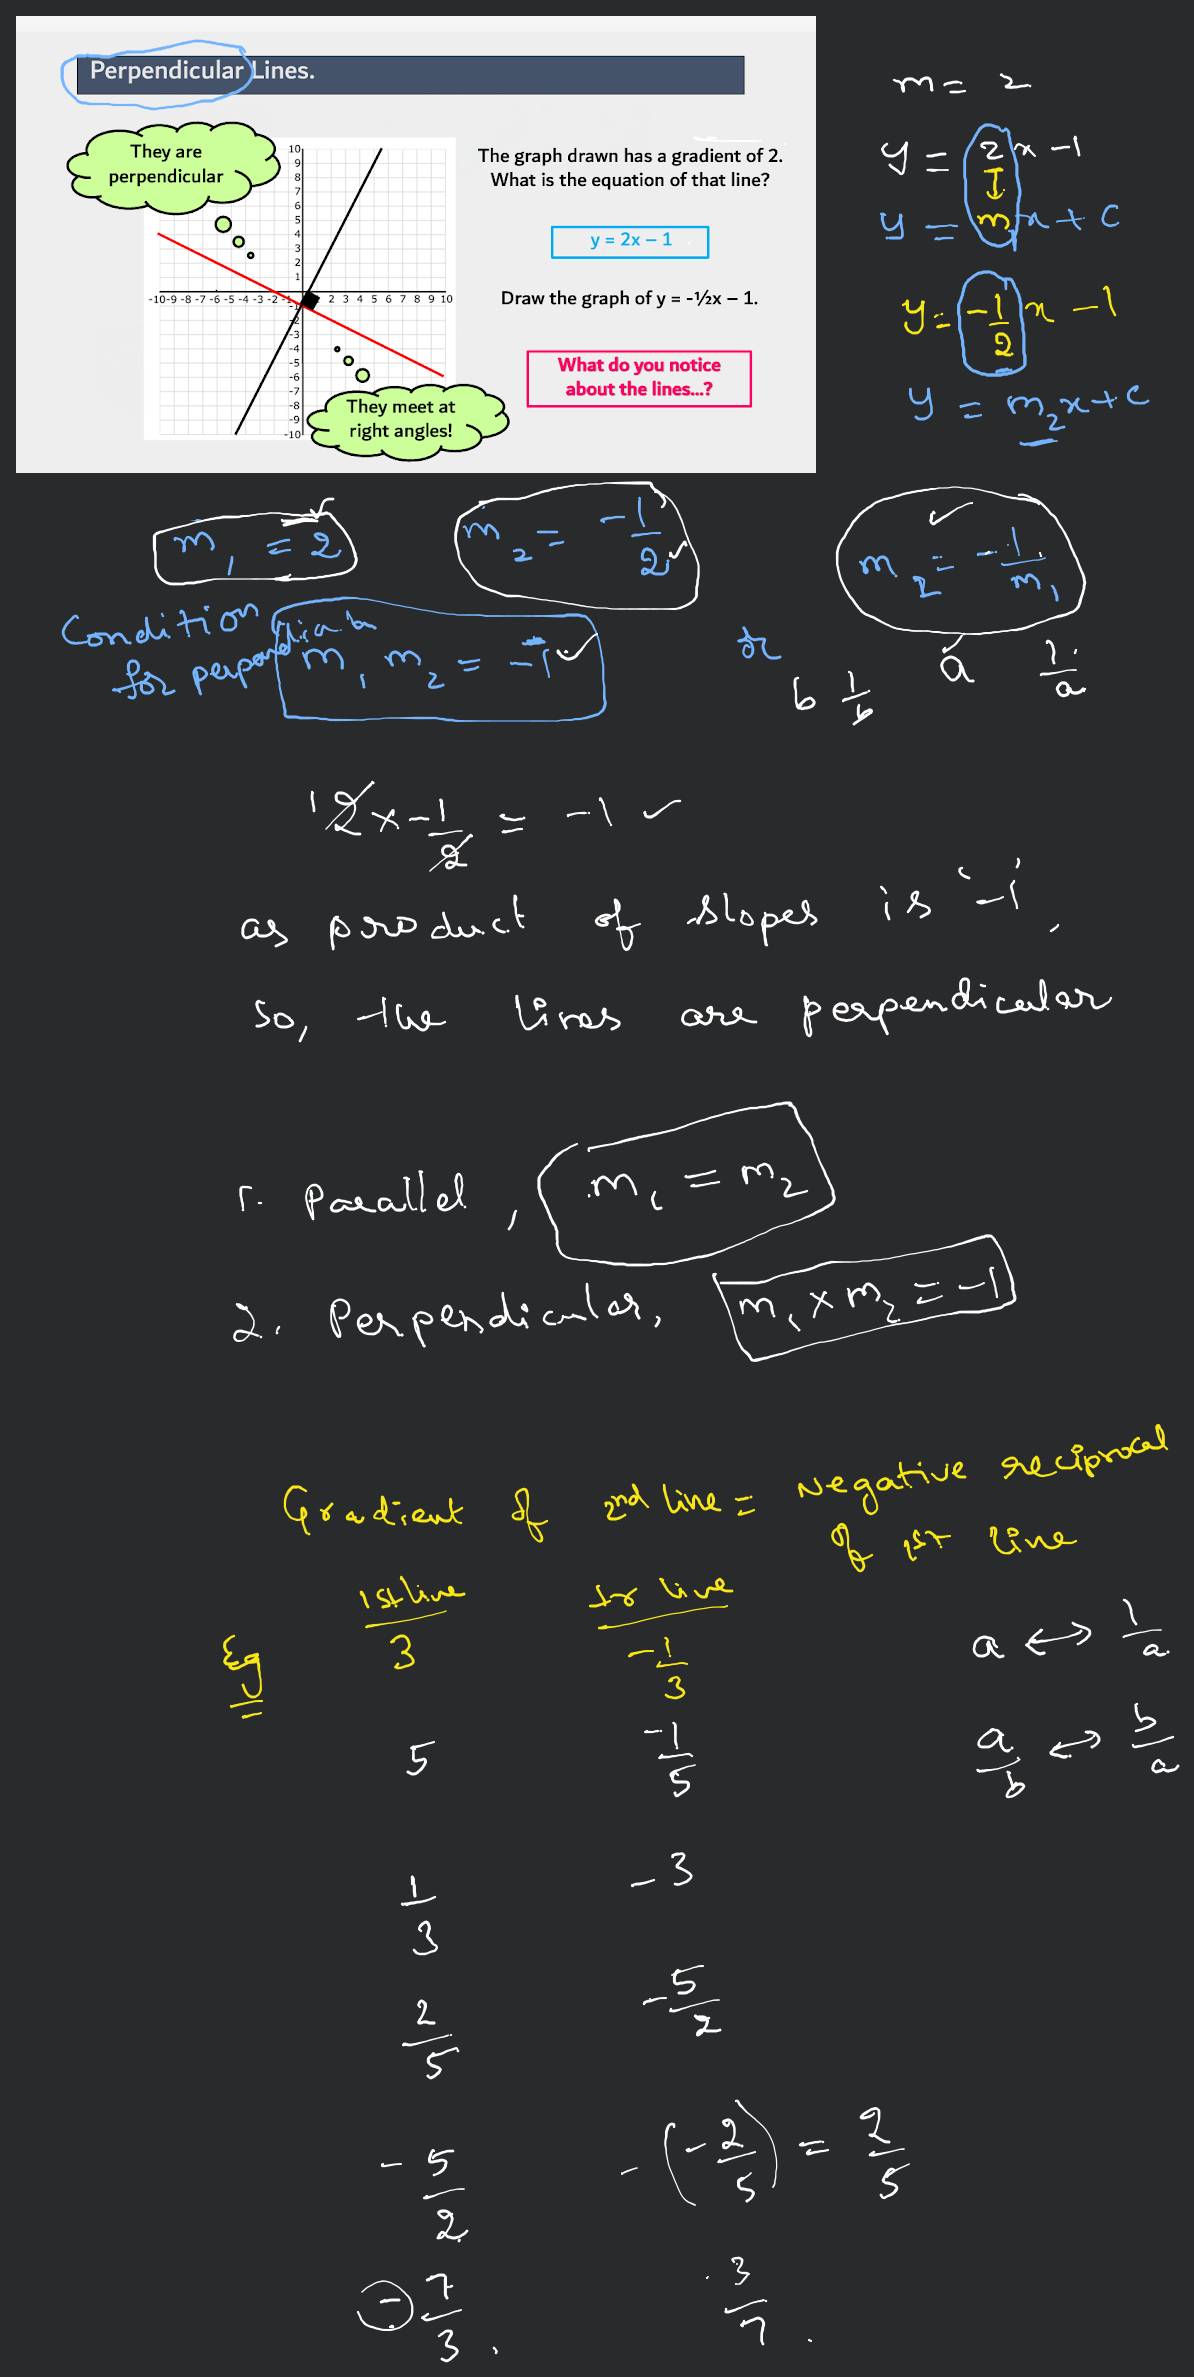 Perpendicular Lines.
They are
perpendicular
10
9
8
7
6
5
4
3
2
1
-10-9 -8 -7 -6 -5 -4 -3 -2 -1 2 3 4 5 6 7 8 9 10
-1
-2
-3
-4
-5
-6
-7
-8
-9
-10
They meet at
right angles!
The graph drawn has a gradient of 2.
What is the equation of that line?
y = 2x – 1
Draw the graph of y = -½x – 1.
What do you notice
about the lines...?
m = 2
y = 2x -1
y = m₁x + c
y = -1/2 x - 1
y = m₂x + c
m₁ = 2
m₂ = -1/2
m₂ = -1/m₁
Condition
for perpendicular
m₁ m₂ = -1
or
b 1/b
a 1/a
2 x -1/2 = -1
as product of slopes is '-1',
so, the lines are perpendicular
1. Parallel, m₁ = m₂
2. Perpendicular, m₁ x m₂ = -1
Gradient of 2nd line = Negative reciprocal
of 1st line
1st line
Eg
3 -1/3
a ↔ 1/a
5 -1/5
a/b ↔ b/a
1/3 -3
2/5 -5/2
-5/2 -(-2/5) = 2/5
-7/3, 3/7.